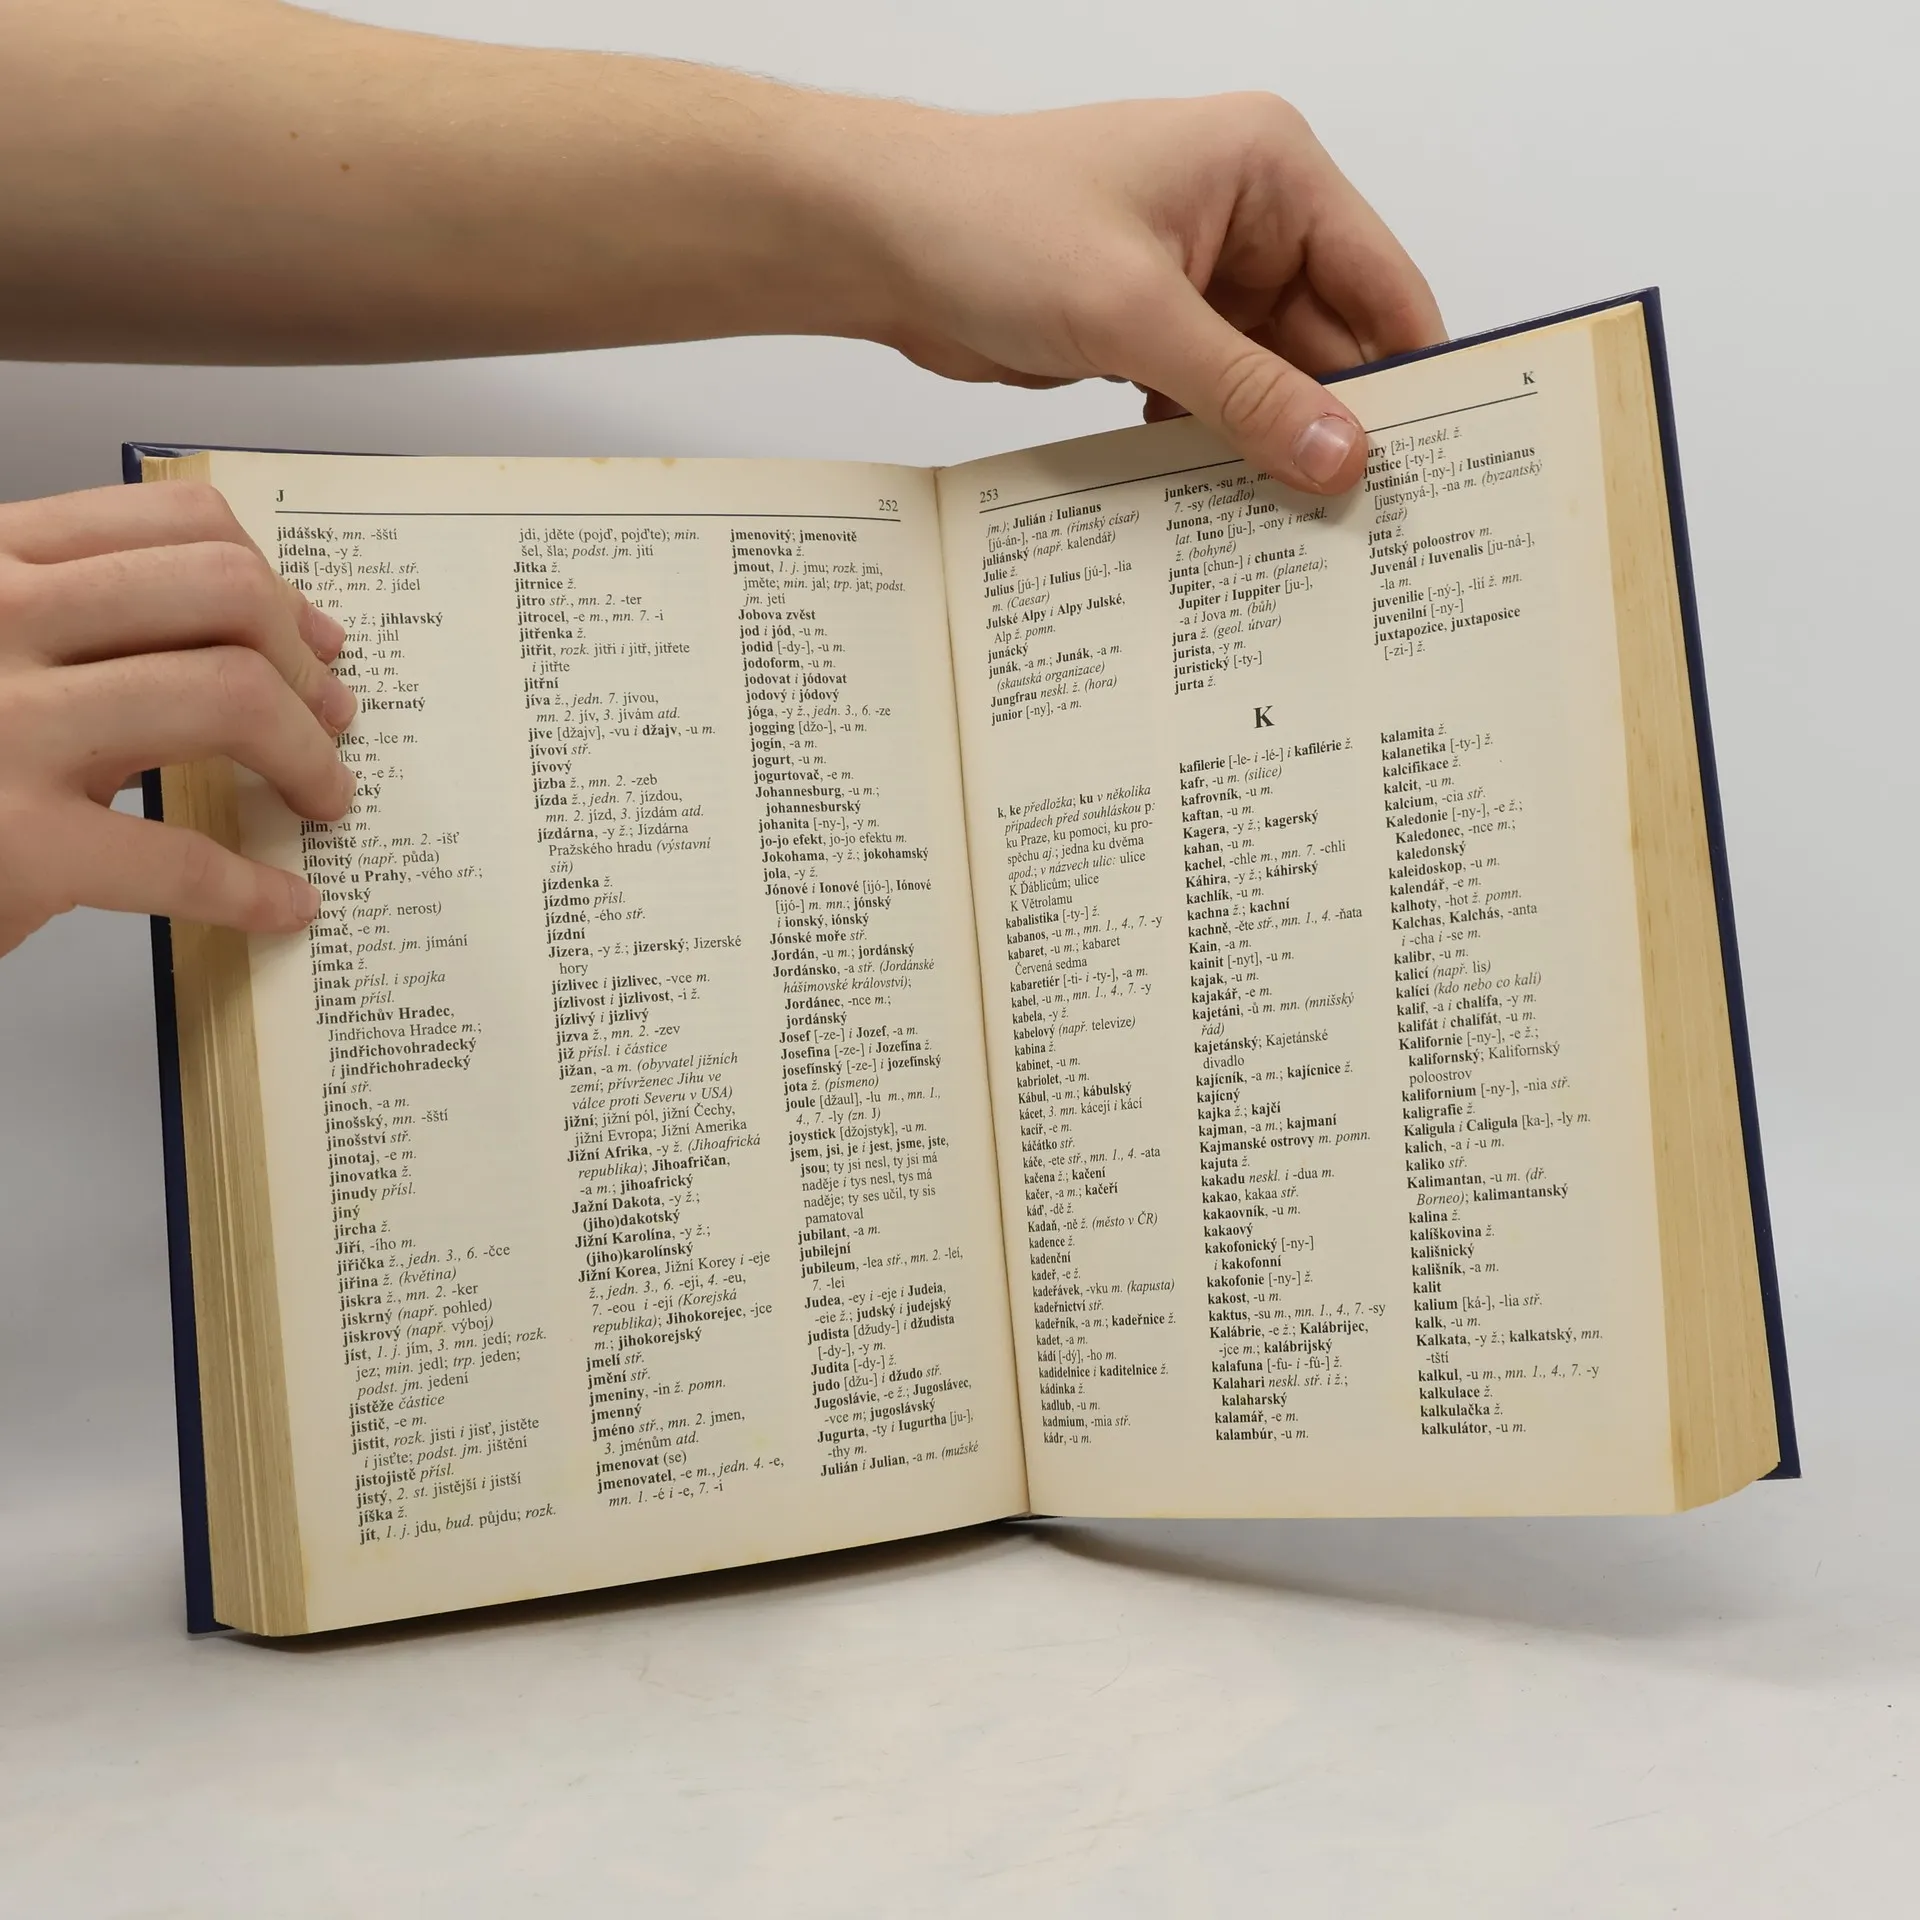 J
252
jidášský, mn. -šští
jídelna, -y ž.
jidiš [-dyš] neskl. stř.
stř., mn. 2. jídel
-u m.
-y ž.; jihlavský
min. jihl
-u m.
-u m.
mn. 2. -ker
jikernatý
jílec, -lce m.
-e ž.;
m.
jilm, -u m.
jíloviště stř., mn. 2. -išť
jílovitý (např. půda)
Jílové u Prahy, -vého stř.;
jílovský
(např. nerost)
jímač, -e m.
jímat, podst. jm. jímání
jímka ž.
jinak přísl. i spojka
jinam přísl.
Jindřichův Hradec,
Jindřichova Hradce m.;
jindřichovohradecký
i jindřichohradecký
jíní stř.
jinoch, -a m.
jinošský, mn. -šští
jinošství stř.
jinotaj, -e m.
jinovatka ž.
jinudy přísl.
jiný
jircha ž.
Jiří, -ího m.
jiřička ž., jedn. 3., 6. -čce
jiřina ž. (květina)
jiskra ž., mn. 2. -ker
jiskrný (např. pohled)
jiskrový (např. výboj)
jíst, 1. j. jím, 3. mn. jedí; rozk.
jez; min. jedl; trp. jeden;
podst. jm. jedení
jistěže částice
jistič, -e m.
jistit, rozk. jisti i jisť, jistěte
i jisťte; podst. jm. jištění
jistojistě přísl.
jistý, 2. st. jistější i jistší
jíška ž.
jít, 1. j. jdu, bud. půjdu; rozk.
jdi, jděte (pojď, pojďte); min.
šel, šla; podst. jm. jití
Jitka ž.
jitrnice ž.
jitro stř., mn. 2. -ter
jitrocel, -e m., mn. 7. -i
jitřenka ž.
jitřit, rozk. jitři i jitř, jitřete
i jitřte
jitřní
jíva ž., jedn. 7. jívou,
mn. 2. jív, 3. jívám atd.
jive [džajv], -vu i džajv, -u m.
jívoví stř.
jívový
jizba ž., mn. 2. -zeb
jízda ž., jedn. 7. jízdou,
mn. 2. jízd, 3. jízdám atd.
jízdárna, -y ž.; Jízdárna
Pražského hradu (výstavní
síň)
jízdenka ž.
jízdmo přísl.
jízdné, -ého stř.
jízdní
Jizera, -y ž.; jizerský; Jizerské
hory
jízlivec i jizlivec, -vce m.
jízlivost i jizlivost, -i ž.
jízlivý i jizlivý
jizva ž., mn. 2. -zev
již přísl. i částice
jižan, -a m. (obyvatel jižních
zemí; přívrženec Jihu ve
válce proti Severu v USA)
jižní; jižní pól, jižní Čechy,
jižní Evropa; Jižní Amerika
Jižní Afrika, -y ž. (Jihoafrická
republika); Jihoafričan,
-a m.; jihoafrický
Jažní Dakota, -y ž.;
(jiho)dakotský
Jižní Karolína, -y ž.;
(jiho)karolínský
Jižní Korea, Jižní Korey i -eje
ž., jedn. 3., 6. -eji, 4. -eu,
7. -eou i -ejí (Korejská
republika); Jihokorejec, -jce
m.; jihokorejský
jmelí stř.
jmění stř.
jmeniny, -in ž. pomn.
jmenný
jméno stř., mn. 2. jmen,
3. jménům atd.
jmenovat (se)
jmenovatel, -e m., jedn. 4. -e,
mn. 1. -é i -e, 7. -i
jmenovitý; jmenovitě
jmenovka ž.
jmout, 1. j. jmu; rozk. jmi,
jměte; min. jal; trp. jat; podst.
jm. jetí
Jobova zvěst
jod i jód, -u m.
jodid [-dy-], -u m.
jodoform, -u m.
jodovat i jódovat
jodový i jódový
jóga, -y ž., jedn. 3., 6. -ze
jogging [džo-], -u m.
jogín, -a m.
jogurt, -u m.
jogurtovač, -e m.
Johannesburg, -u m.;
johannesburský
johanita [-ny-], -y m.
jo-jo efekt, jo-jo efektu m.
Jokohama, -y ž.; jokohamský
jola, -y ž.
Jónové i Ionové [ijó-], Iónové
[ijó-] m. mn.; jónský
i ionský, iónský
Jónské moře stř.
Jordán, -u m.; jordánský
Jordánsko, -a stř. (Jordánské
hášimovské království);
Jordánec, -nce m.;
jordánský
Josef [-ze-] i Jozef, -a m.
Josefína [-ze-] i Jozefína ž.
josefínský [-ze-] i jozefínský
jota ž. (písmeno)
joule [džaul], -lu m., mn. 1.,
4., 7. -ly (zn. J)
joystick [džojstyk], -u m.
jsem, jsi, je i jest, jsme, jste,
jsou; ty jsi nesl, ty jsi má
naděje i tys nesl, tys má
naděje; ty ses učil, ty sis
pamatoval
jubilant, -a m.
jubilejní
jubileum, -lea stř., mn. 2. -leí,
7. -lei
Judea, -ey i -eje i Judeia,
-eie ž.; judský i judejský
judista [džudy-] i džudista
[-dy-], -y m.
Judita [-dy-] ž.
judo [džu-] i džudo stř.
Jugoslávie, -e ž.; Jugoslávec,
-vce m; jugoslávský
Jugurta, -ty i Iugurtha [ju-],
-thy m.
Julián i Julian, -a m. (mužské
253
K
jm.); Julián i Iulianus
[jú-án-], -na m. (římský císař)
juliánský (např. kalendář)
Julie ž.
Julius [jú-] i Iulius [jú-], -lia
m. (Caesar)
Julské Alpy i Alpy Julské,
Alp ž. pomn.
junácký
junák, -a m.; Junák, -a m.
(skautská organizace)
Jungfrau neskl. ž. (hora)
junior [-ny], -a m.
junkers, -su m., mn.
7. -sy (letadlo)
Junona, -ny i Juno,
lat. Iuno [ju-], -ony i neskl.
ž. (bohyně)
junta [chun-] i chunta ž.
Jupiter, -a i -u m. (planeta);
Jupiter i Iuppiter [ju-],
-a i Jova m. (bůh)
jura ž. (geol. útvar)
jurista, -y m.
juristický [-ty-]
jurta ž.
[ži-] neskl. ž.
justice [-ty-] ž.
Justinián [-ny-] i Iustinianus
[justynyá-], -na m. (byzantský
císař)
juta ž.
Jutský poloostrov m.
Juvenál i Iuvenalis [ju-ná-],
-la m.
juvenilie [-ný-], -lií ž. mn.
juvenilní [-ny-]
juxtapozice, juxtaposice
[-zi-] ž.
K
k, ke předložka; ku v několika
případech před souhláskou p:
ku Praze, ku pomoci, ku pro-
spěchu aj.; jedna ku dvěma
apod.; v názvech ulic: ulice
K Ďáblicům; ulice
K Větrolamu
kabalistika [-ty-] ž.
kabanos, -u m., mn. 1., 4., 7. -y
kabaret, -u m.; kabaret
Červená sedma
kabaretiér [-ti- i -ty-], -a m.
kabel, -u m., mn. 1., 4., 7. -y
kabela, -y ž.
kabelový (např. televize)
kabina ž.
kabinet, -u m.
kabriolet, -u m.
Kábul, -u m.; kábulský
kácet, 3. mn. kácejí i kácí
kacíř, -e m.
káčátko stř.
káče, -ete stř., mn. 1., 4. -ata
kačena ž.; kačení
kačer, -a m.; kačeří
káď, -dě ž.
Kadaň, -ně ž. (město v ČR)
kadence ž.
kadenční
kadeř, -e ž.
kadeřávek, -vku m. (kapusta)
kadeřnictví stř.
kadeřník, -a m.; kadeřnice ž.
kadet, -a m.
kádí [-dý], -ho m.
kadidelnice i kaditelnice ž.
kádinka ž.
kadlub, -u m.
kadmium, -mia stř.
kádr, -u m.
kafilerie [-le- i -lé-] i kafilérie ž.
kafr, -u m. (silice)
kafrovník, -u m.
kaftan, -u m.
Kagera, -y ž.; kagerský
kahan, -u m.
kachel, -chle m., mn. 7. -chli
Káhira, -y ž.; káhirský
kachlík, -u m.
kachna ž.; kachní
kachně, -ěte stř., mn. 1., 4. -ňata
Kain, -a m.
kainit [-nyt], -u m.
kajak, -u m.
kajakář, -e m.
kajetáni, -ů m. mn. (mnišský
řád)
kajetánský; Kajetánské
divadlo
kajícník, -a m.; kajícnice ž.
kajícný
kajka ž.; kajčí
kajman, -a m.; kajmaní
Kajmanské ostrovy m. pomn.
kajuta ž.
kakadu neskl. i -dua m.
kakao, kakaa stř.
kakaovník, -u m.
kakaový
kakofonický [-ny-]
i kakofonní
kakofonie [-ny-] ž.
kakost, -u m.
kaktus, -su m., mn. 1., 4., 7. -sy
Kalábrie, -e ž.; Kalábrijec,
-jce m.; kalábrijský
kalafuna [-fu- i -fú-] ž.
Kalahari neskl. stř. i ž.;
kalaharský
kalamář, -e m.
kalambúr, -u m.
kalamita ž.
kalanetika [-ty-] ž.
kalcifikace ž.
kalcit, -u m.
kalcium, -cia stř.
Kaledonie [-ny-], -e ž.;
Kaledonec, -nce m.;
kaledonský
kaleidoskop, -u m.
kalendář, -e m.
kalhoty, -hot ž. pomn.
Kalchas, Kalchás, -anta
i -cha i -se m.
kalibr, -u m.
kalicí (např. lis)
kalící (kdo nebo co kalí)
kalif, -a i chalífa, -y m.
kalifát i chalífát, -u m.
Kalifornie [-ny-], -e ž.;
kalifornský; Kalifornský
poloostrov
kalifornium [-ny-], -nia stř.
kaligrafie ž.
Kaligula i Caligula [ka-], -ly m.
kalich, -a i -u m.
kaliko stř.
Kalimantan, -u m. (dř.
Borneo); kalimantanský
kalina ž.
kalíškovina ž.
kališnický
kališník, -a m.
kalit
kalium [ká-], -lia stř.
kalk, -u m.
Kalkata, -y ž.; kalkatský, mn.
-tští
kalkul, -u m., mn. 1., 4., 7. -y
kalkulace ž.
kalkulačka ž.
kalkulátor, -u m.